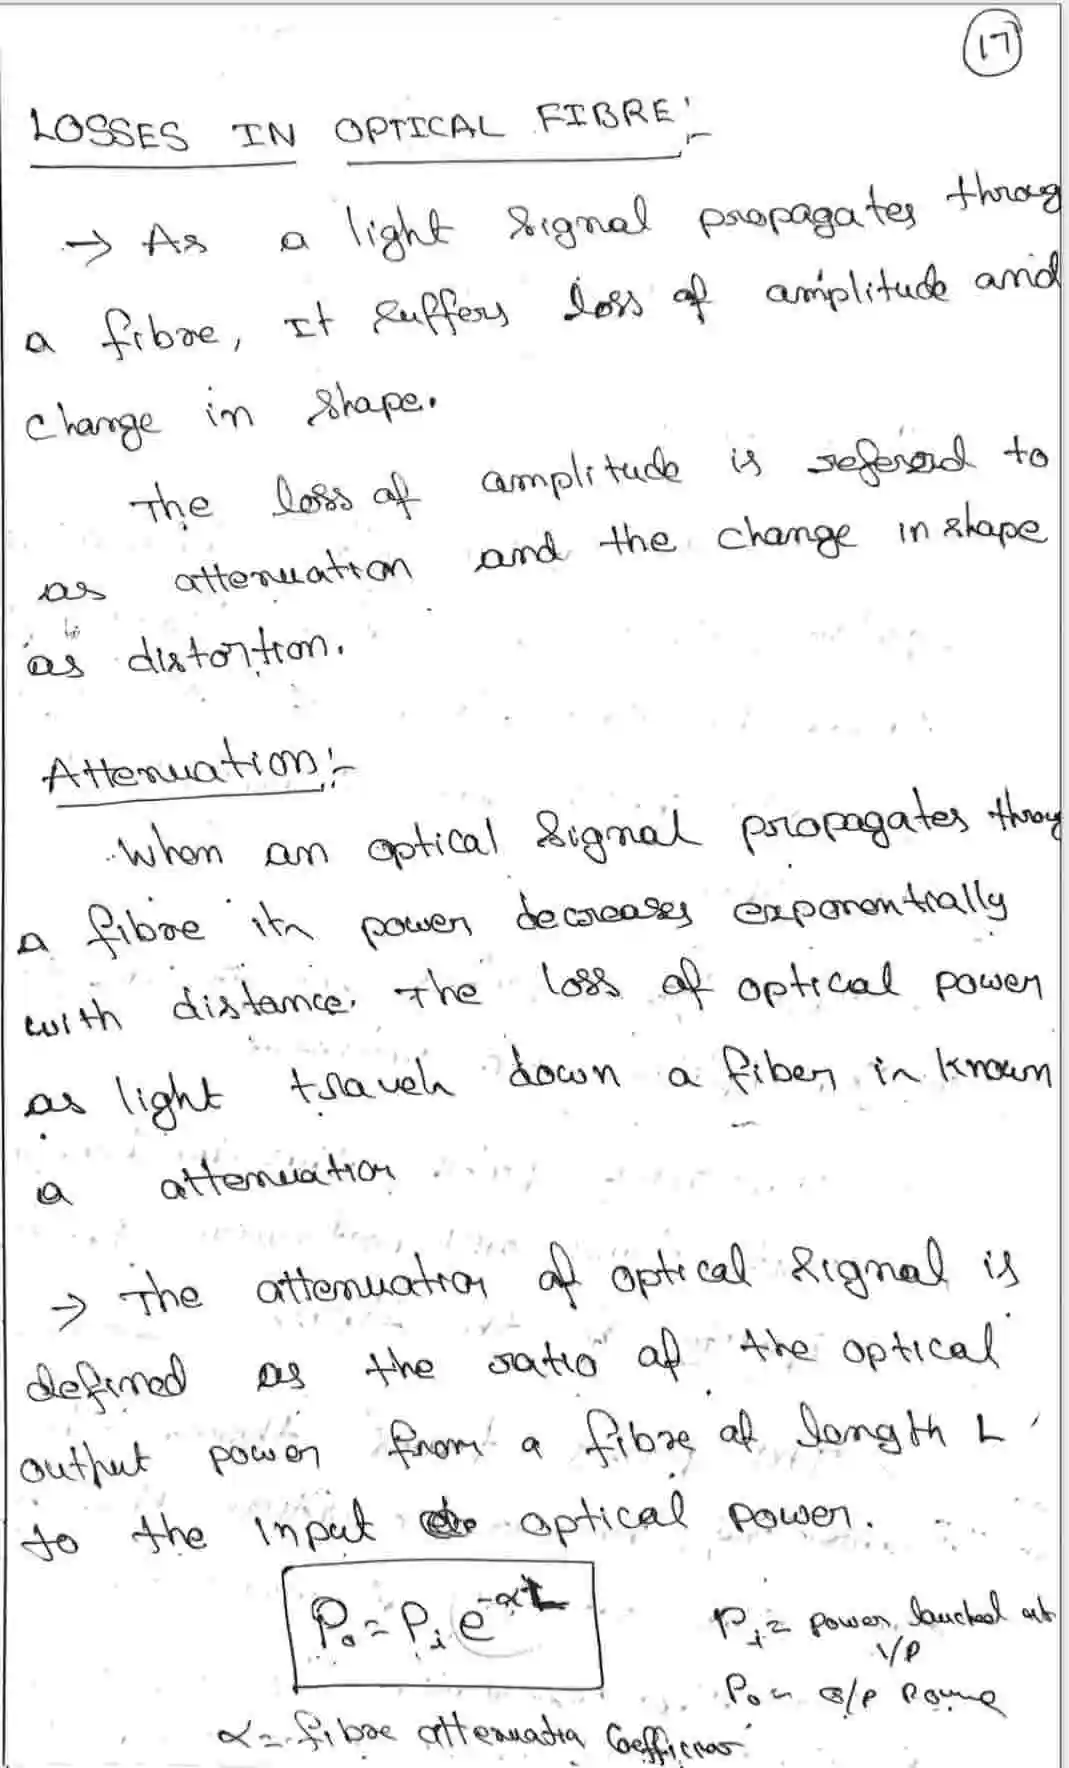 17
LOSSES IN OPTICAL FIBRE :-
→ As a light signal propagates throug
a fibre, It suffers loss of amplitude and
change in shape.
The loss of amplitude is refered to
as attenuation and the change in shape
as distortion.
Attenuation :-
When an optical signal propagates throug
a fibre its power decreases exponentially
with distance. The loss of optical power
as light travels down a fiber is known
a attenuation
→ The attenuation of optical signal is
defined as the ratio of the optical
output power from a fibre of length L
to the input optical power.
P₀ = Pᵢ e^-αL
Pᵢ = power lauched at
I/P
P₀ = o/p Power
α = fibre attenuation Coefficient